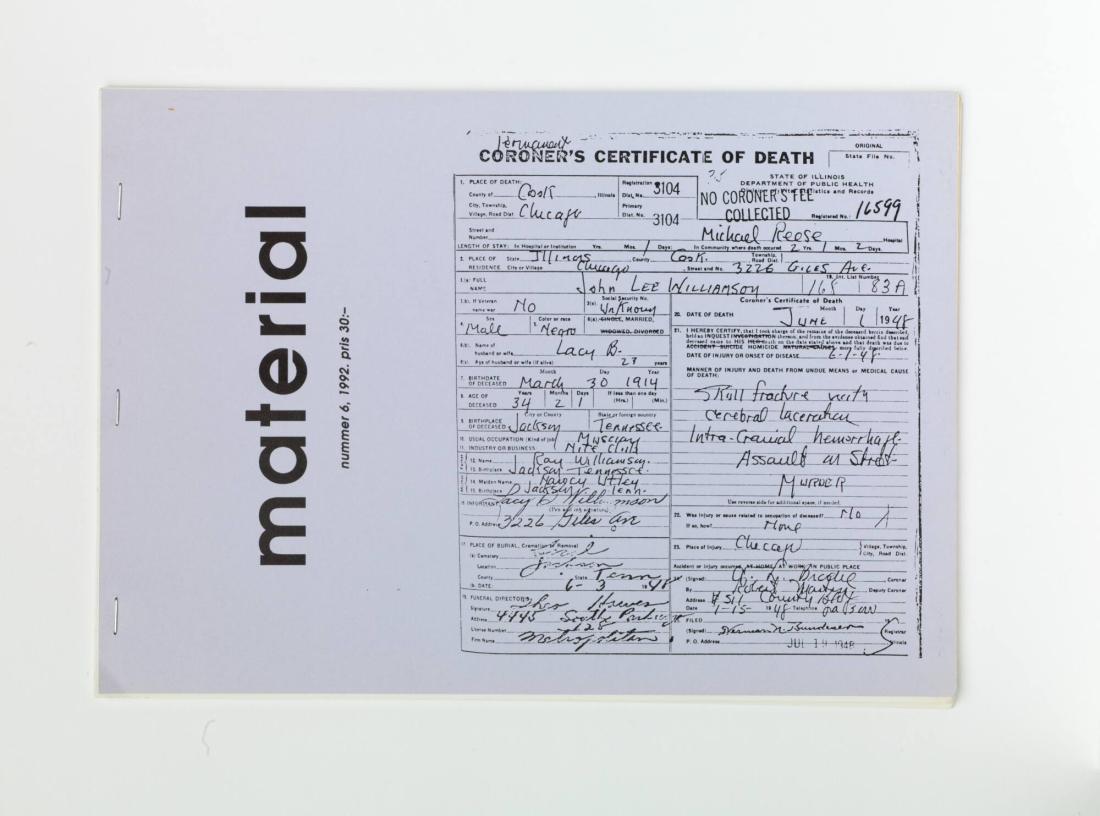 material
nummer 6, 1992. pris 30:–
Permanent
CORONER'S CERTIFICATE OF DEATH
ORIGINAL
State File No.
STATE OF ILLINOIS
DEPARTMENT OF PUBLIC HEALTH
Statistics and Records
NO CORONER'S FEE
COLLECTED
Registered No. 16599
1. PLACE OF DEATH:
County of Cook, Illinois
Registration Dist. No. 3104
City, Township, Village, Road Dist. Chicago
Primary Dist. No. 3104
Street and Number Michael Reese Hospital
LENGTH OF STAY: In Hospital or Institution Yrs. Mos. 1 Days: In Community where death occurred 2 Yrs. 1 Mos. 2 Days.
2. PLACE OF RESIDENCE State Illinois County Cook Township, Road Dist.
City or Village Chicago Street and No. 3226 GILES AVE.
3.(a) FULL NAME John LEE WILLIAMSON
Int. List Number
168 83A
3.(b). If Veteran name war NO
3(c). Social Security No. UnKnown
Sex Male
Color or race Negro
6(a). SINGLE, MARRIED, WIDOWED, DIVORCED
6(b). Name of husband or wife Lacy B.
6(c). Age of husband or wife (if alive) 27 years
7. BIRTHDATE OF DECEASED Month March Day 30 Year 1914
8. AGE OF DECEASED Years 34 Months 2 Days 1 If less than one day (Hrs.) (Min.)
9. BIRTHPLACE OF DECEASED City or County Jackson State or foreign country Tennessee
10. USUAL OCCUPATION (Kind of job) Musician
11. INDUSTRY OR BUSINESS Nite Club
12. Name Ray Williamson
13. Birthplace Jackson Tennessee
14. Maiden Name Nancy Utley
15. Birthplace Jackson Tenn.
16. INFORMANT Lacy B Williamson
P. O. Address 3226 Giles Av
17. PLACE OF BURIAL, Cremation or Removal
(a) Cemetery
Location Jackson
County State Tenn
DATE: 6-3 1948
19. FUNERAL DIRECTOR
Signature
Address 4445 South Parkway
License Number 128
Firm Name Metropolitan
Coroner's Certificate of Death
20. DATE OF DEATH Month JUNE Day 1 Year 1948
21. I HEREBY CERTIFY, that I took charge of the remains of the deceased herein described, held an INQUEST INVESTIGATION thereon, and from the evidence obtained find that said deceased came to HIS HER death on the date stated above and that death was due to ACCIDENT SUICIDE HOMICIDE NATURAL CAUSES more fully described below.
DATE OF INJURY OR ONSET OF DISEASE 6-1-48
MANNER OF INJURY AND DEATH FROM UNDUE MEANS or MEDICAL CAUSE OF DEATH:
Skull fracture
cerebral laceration
Intra-Cranial hemorrhage
Assault on Street
MURDER
Use reverse side for additional space, if needed.
22. Was injury or cause related to occupation of deceased? No
If so, how? None
23. Place of Injury Chicago Village, Township, City, Road Dist.
Accident or injury occurred AT HOME, AT WORK, IN PUBLIC PLACE
(Signed) A. L. Brodie Coroner
By Deputy Coroner
Address # 511 County Bldg
Date 7-15- 1948 Telephone
FILED
(Signed) Herman N. Bundesen Registrar
P. O. Address JUL 19 1948 Illinois